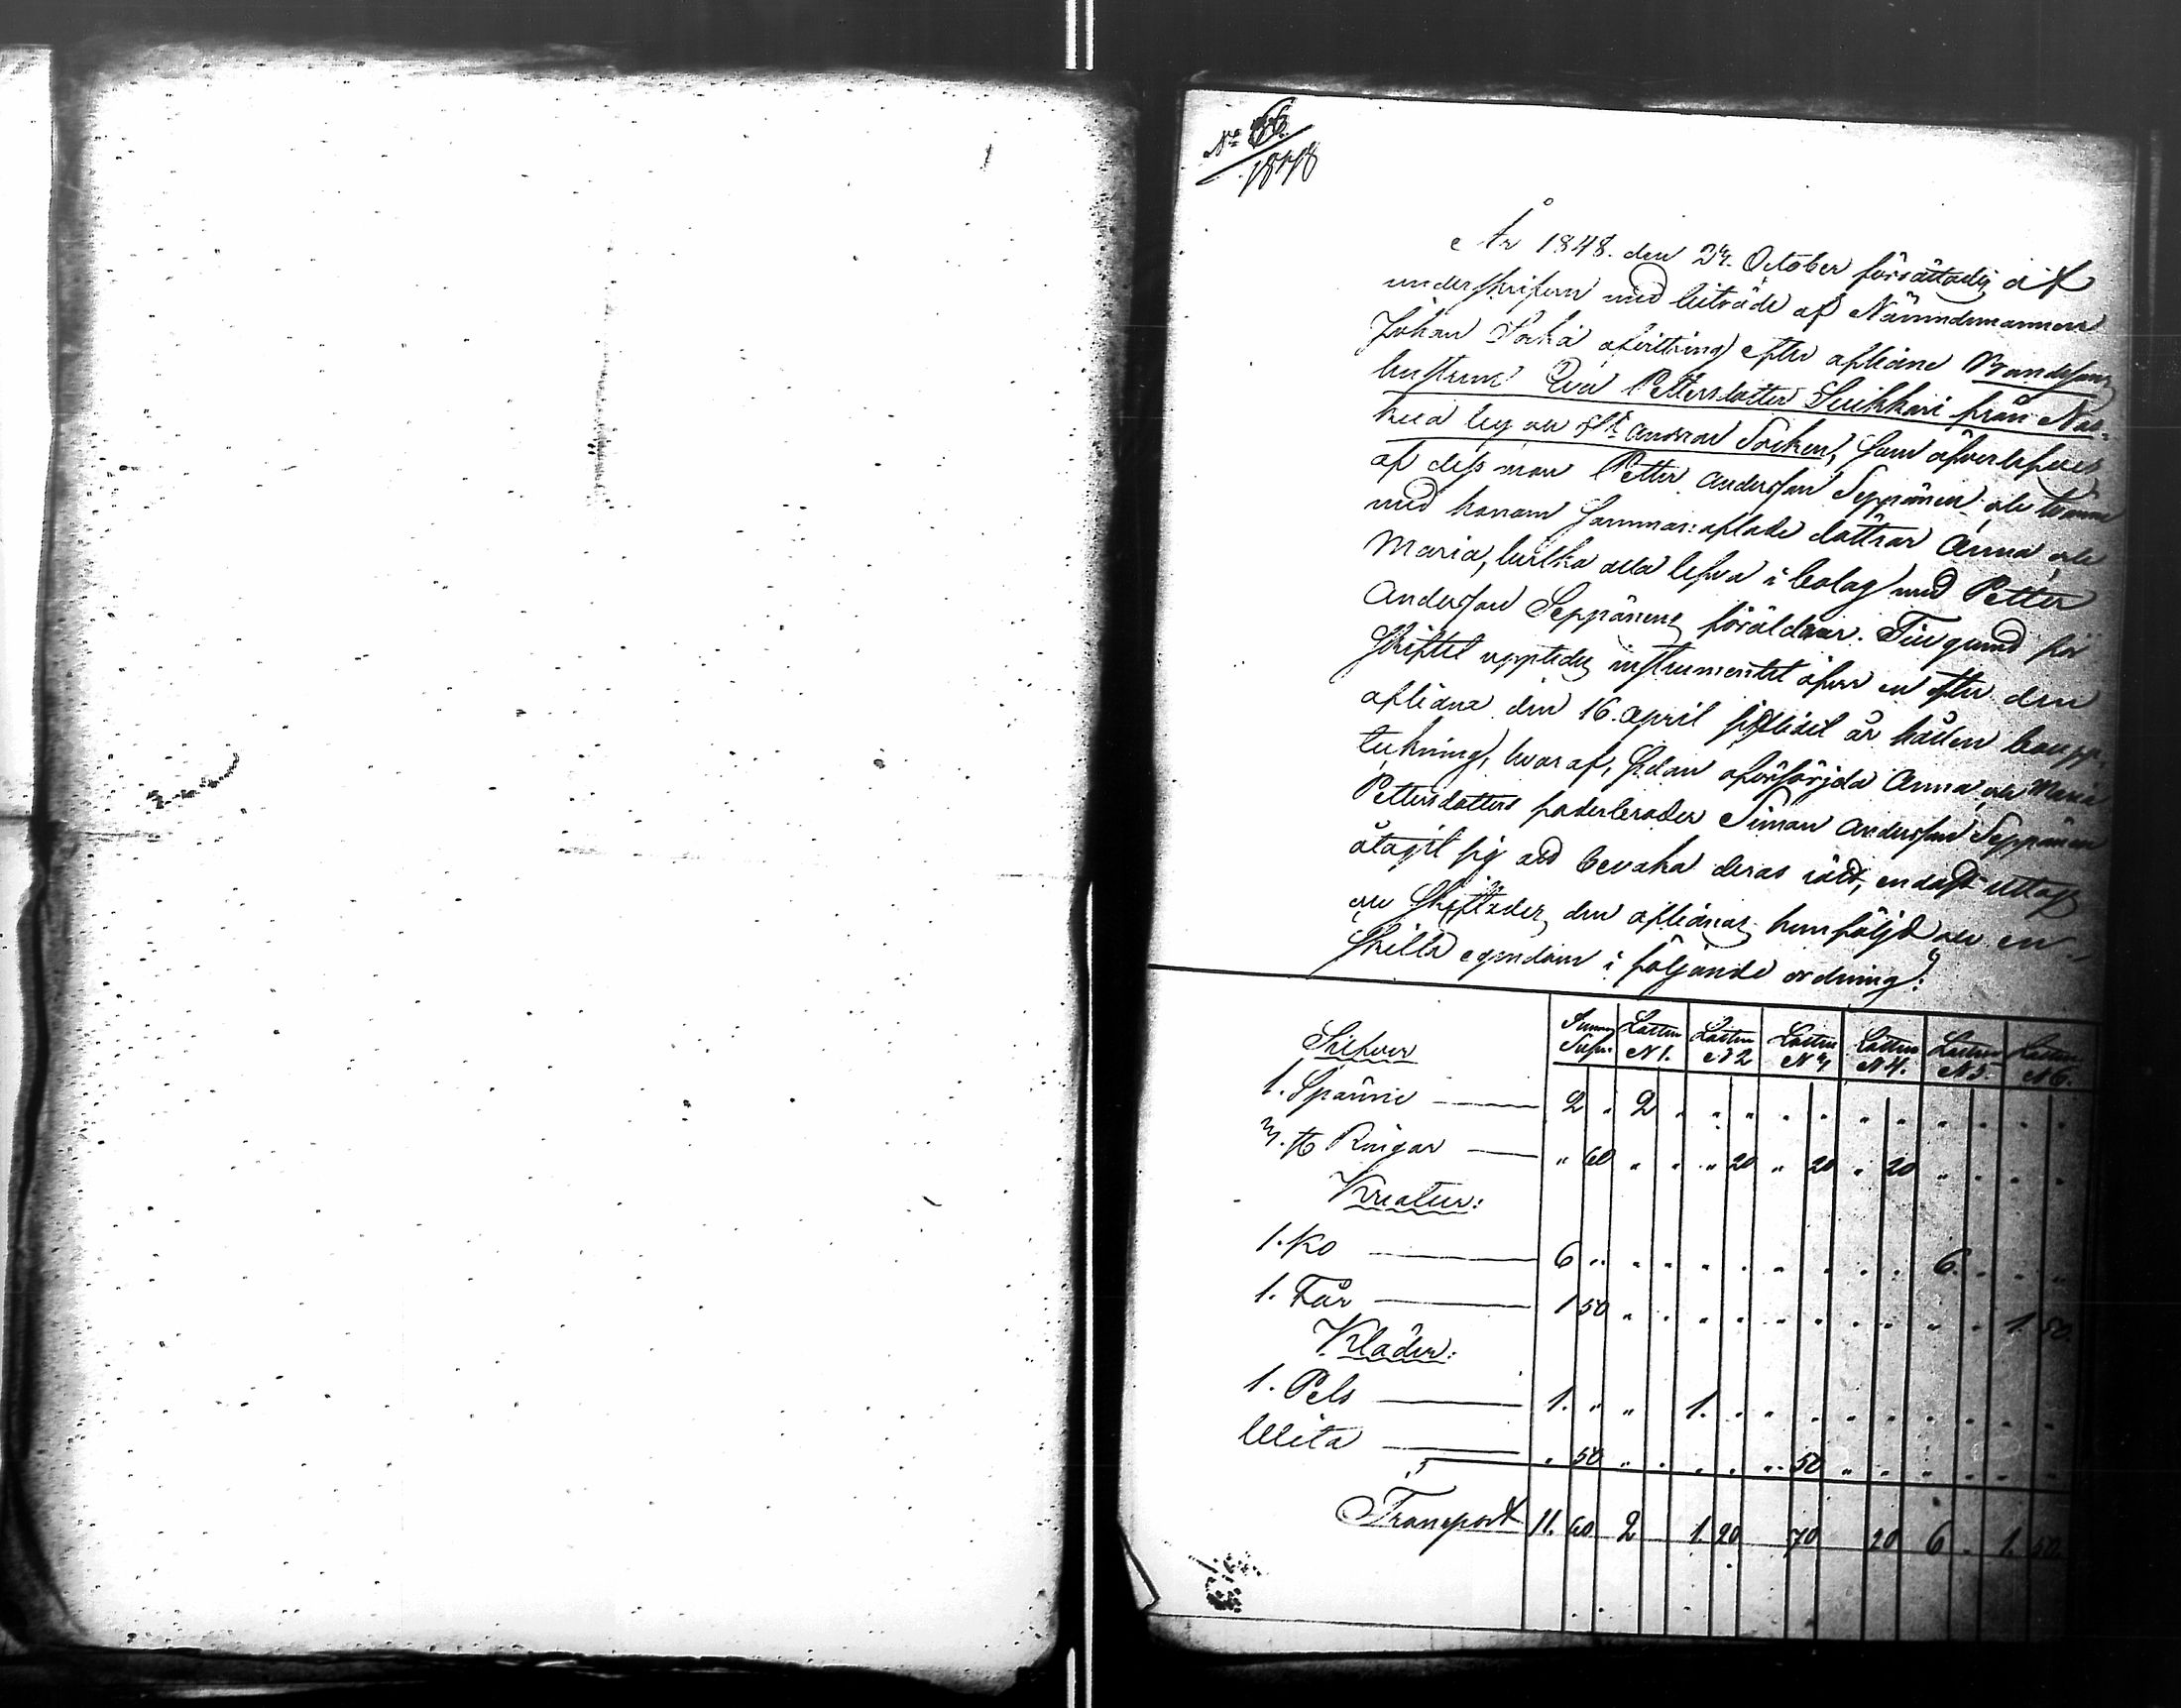 No 66
1848
År 1848. den 24. October förrättades af
underskrifven med biträde af Nämndemannen
Johan afvittring efter aflidne Bondeson
hustrun Eva Pettersdotter Suikkari från Nas-
kua by och St Andreæ Socken, som öfverlefves
af dess man Petter Andersson Seppänen och tvänne
med honom sammanaflade döttrar Anna och
Maria, hvilka alla lefva i bolag med Petter
Andersson Seppänens föräldrar. Till grund för
skiftet upptedes instrumentet öfver en efter den
aflidna den 16. April sistlidit år hållen boupp-
teckning, hvaraf, sedan oförsörjda Anna och Maria
Pettersdotters faderbroder Simon Andersson Seppänen
åtagit sig att bevaka deras rätt, endast uttogs
och skiftades den aflidnas hemföljd och en-
skilda egendom i följande ordning:
Silfver Summa Silfv: Lotten N 1. Lotten N 2 Lotten N 3 Lotten N 4. Lotten N 5. Lotten N 6.
1. Spänne 2 " 2 " " " " " " " " " " "
3. st Ringar " 60 " " " 20 " 20 " 20 " " " "
Kreatur:
1. Ko 6 " " " " " " " " " 6. " " "
1. Får 1 50 " " " " " " " " " " 1. 50.
Kläder:
1. Pels 1. " " 1. " " " " " " " " "
" 50 " " " " " 50 " " " " " "
Transport 11. 60 2 1. 20 70 20 6 " 1. 50